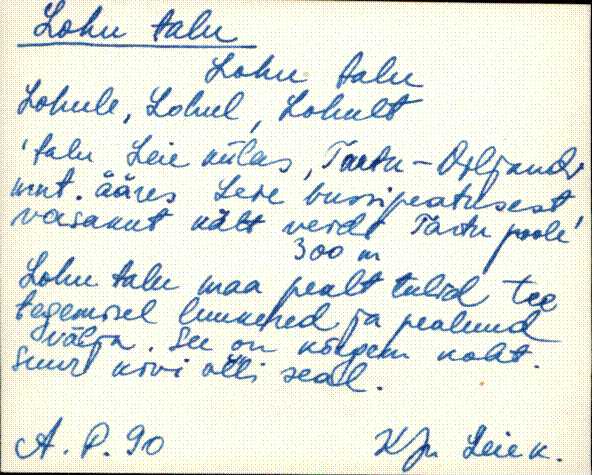 Lohu talu
Lohu talu
Lohule, Lohul, Lohult
'talu Leie külas, Tartu - Viljandi
mnt. ääres Leie bussipeatusest
vasakut kätt veidi Tartu poole'
300 m
Lohu talu maa pealt tulid tee
tegemisel luukered ja pealuud
välja. See on kõrgem koht.
Suuri kivi olli seal.
A. P. 90
Kjn Leie k.